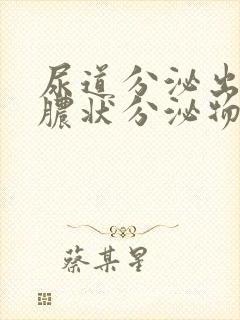 尿道分泌出
膿状分泌物
蔡某星